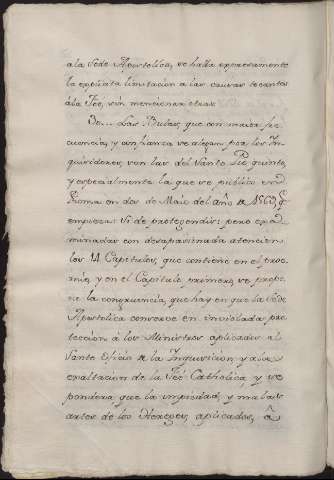 a la Sede Apostolica, se halla expresamente
la expresada limitacion a las causas tocantes
à la Feè, sin mencionar otras.
30... Las Bulas, que con mayor fre
cuencia, y confianza se alegan por los In
quisidores, son las del Santo Pio quinto,
y especialmente la que se publicò en
Roma en dos de Maio del año de 1569 q.
empieza: Si de protegendis: pero exa
minadas con desapasionada atencion
los 14 Capitulos, que contiene en el proe
mio, y en el Capitulo primero, se propo
ne la congruencia, que hay en que la Sede
Apostolica conserve en inviolada pro
teccion à los Ministros aplicados al
Santo Oficio de la Inquisicion, y a la
exaltacion de la Feè Catholica, y se
pondera que la impiedad, y malas
artes de los Hereges, aplicadas, à